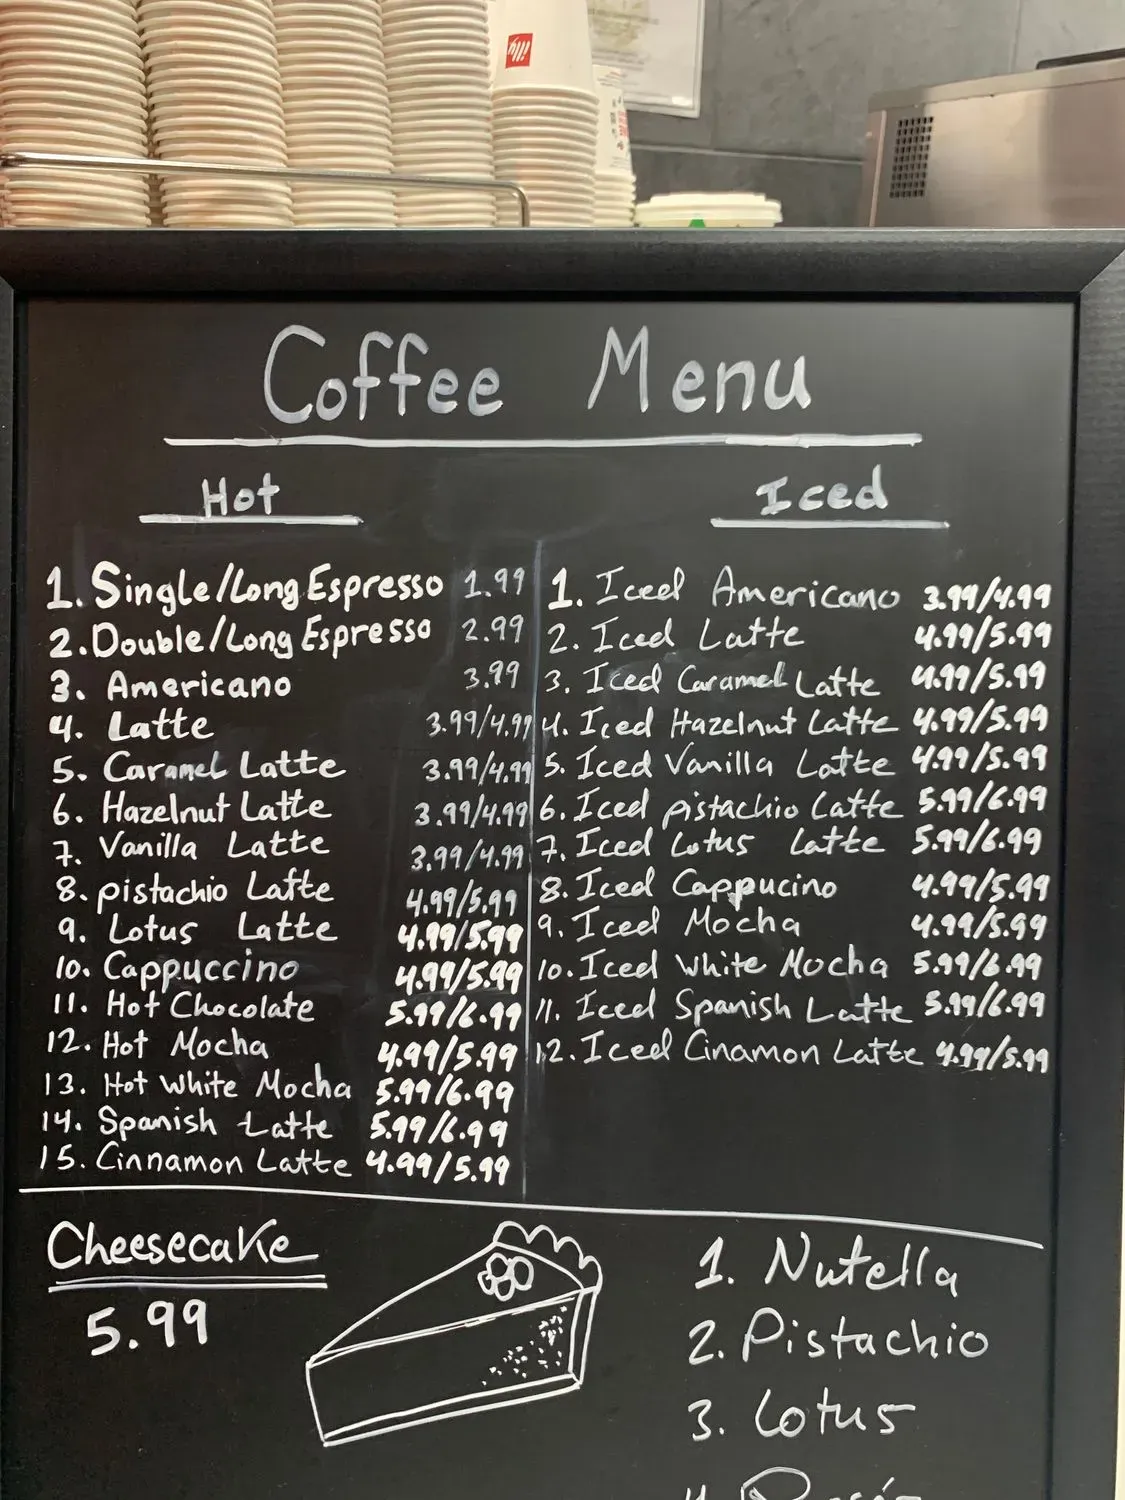 illy
Coffee Menu
Hot
1. Single/Long Espresso 1.99
2. Double/Long Espresso 2.99
3. Americano 3.99
4. Latte 3.99/4.99
5. Caramel Latte 3.99/4.99
6. Hazelnut Latte 3.99/4.99
7. Vanilla Latte 3.99/4.99
8. pistachio Latte 4.99/5.99
9. Lotus Latte 4.99/5.99
10. Cappuccino 4.99/5.99
11. Hot Chocolate 5.99/6.99
12. Hot Mocha 4.99/5.99
13. Hot White Mocha 5.99/6.99
14. Spanish Latte 5.99/6.99
15. Cinnamon Latte 4.99/5.99
Iced
1. Iced Americano 3.99/4.99
2. Iced Latte 4.99/5.99
3. Iced Caramel Latte 4.99/5.99
4. Iced Hazelnut Latte 4.99/5.99
5. Iced Vanilla Latte 4.99/5.99
6. Iced pistachio Latte 5.99/6.99
7. Iced Lotus Latte 5.99/6.99
8. Iced Cappucino 4.99/5.99
9. Iced Mocha 4.99/5.99
10. Iced White Mocha 5.99/6.99
11. Iced Spanish Latte 5.99/6.99
12. Iced Cinamon Latte 4.99/5.99
Cheesecake
5.99
1. Nutella
2. Pistachio
3. Lotus